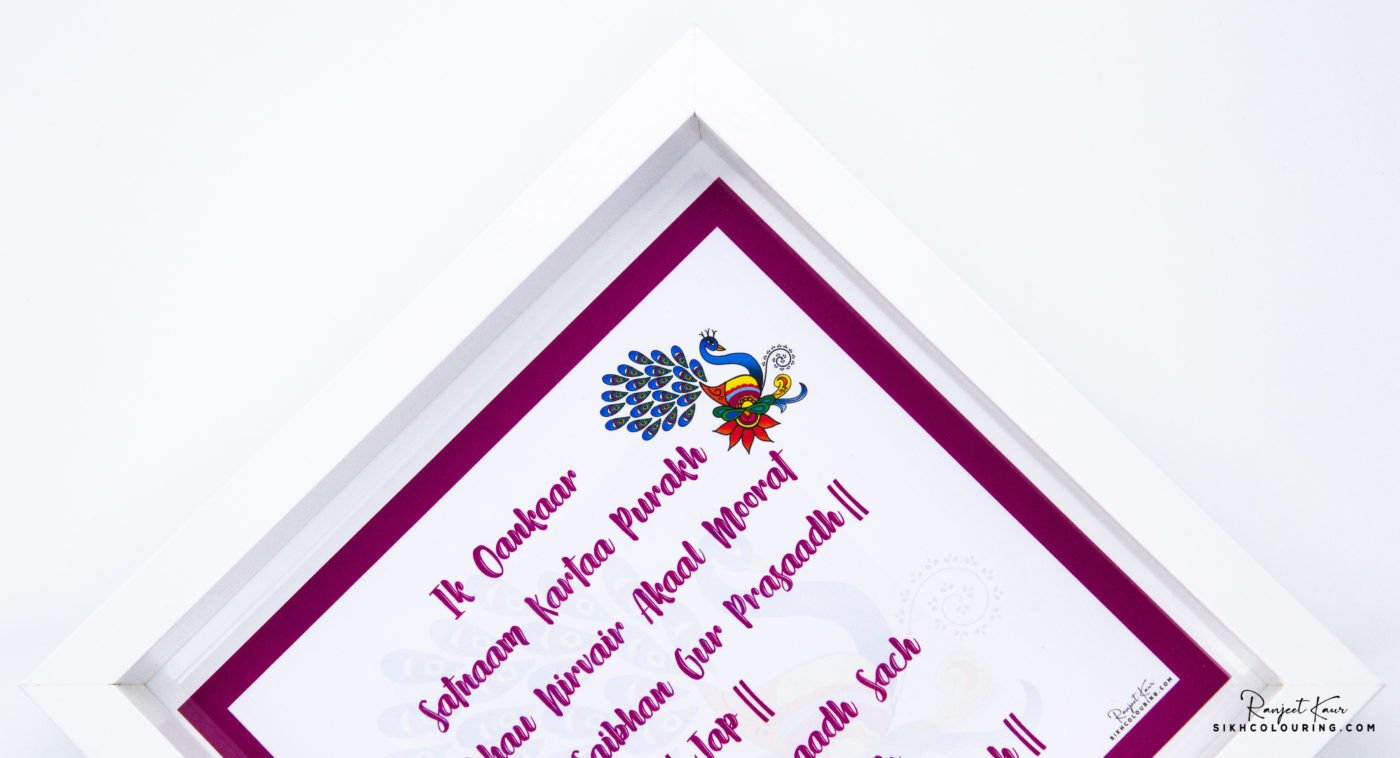 Ik Oankaar
Satnaam Kartaa Purakh
Nirvair Akaal Moorat
Saibhan Gur Prasaadh ||
Jap ||
Sach
||
Ranjeet Kaur
SIKHCOLOURING.COM
Ranjeet Kaur
SIKHCOLOURING.COM